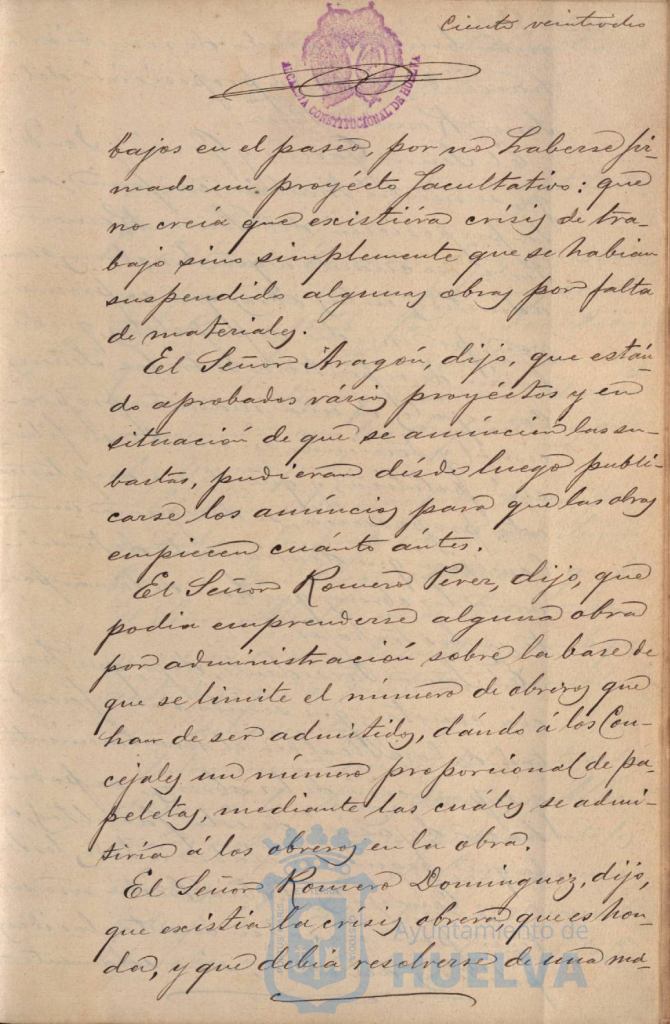 Ciento veintidos
ALCALDIA CONSTITUCIONAL DE HUELVA
bajos en el paseo, por no haberse fir-
mado un proyécto facultativo: que
no creía que existiéra crísis de tra-
bajo sino simplemente que se habian
suspendido algunas obras por falta
de materiales.
El Señor Aragón, dijo, que están-
do aprobados vários proyéctos y en
situación de que se anúncien las su-
bastas, pudieran désde luego publi-
carse los anúncios para que las obras
empiecen cuánto ántes.
El Señor Romero Perez, dijo, que
podia emprenderse alguna obra
por administración sobre la base de
que se limite el número de obreros que
han de ser admitidos, dándo á los Con-
cejales un número proporcional de pa-
peletas, mediante las cuáles se admi-
tiría á los obreros en la obra.
El Señor Romero Dominguez, dijo,
que existia la crísis obrera que es hon-
da, y que debia resolverse de una ma-
Ayuntamiento de
HUELVA